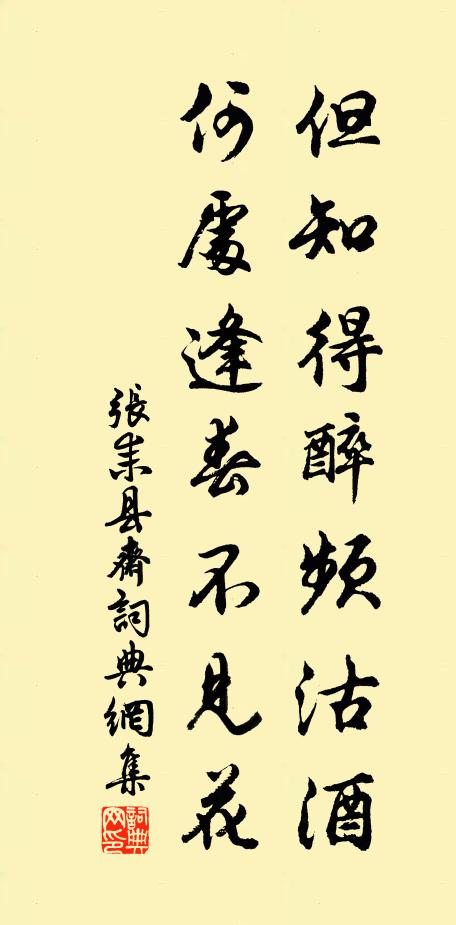 但知得醉頻沽酒
何處逢春不見花
張耒县齋詞典網集
詞典
网印